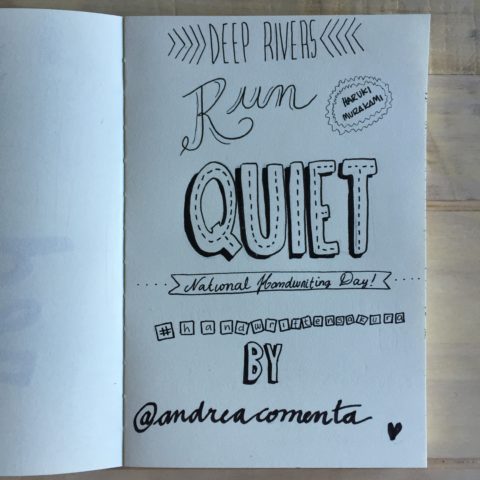 DEEP RIVERS
Run
HARUKI
MURAKAMI
QUIET
National Handwriting Day!
#handwrittensakura
BY
@andreacomenta